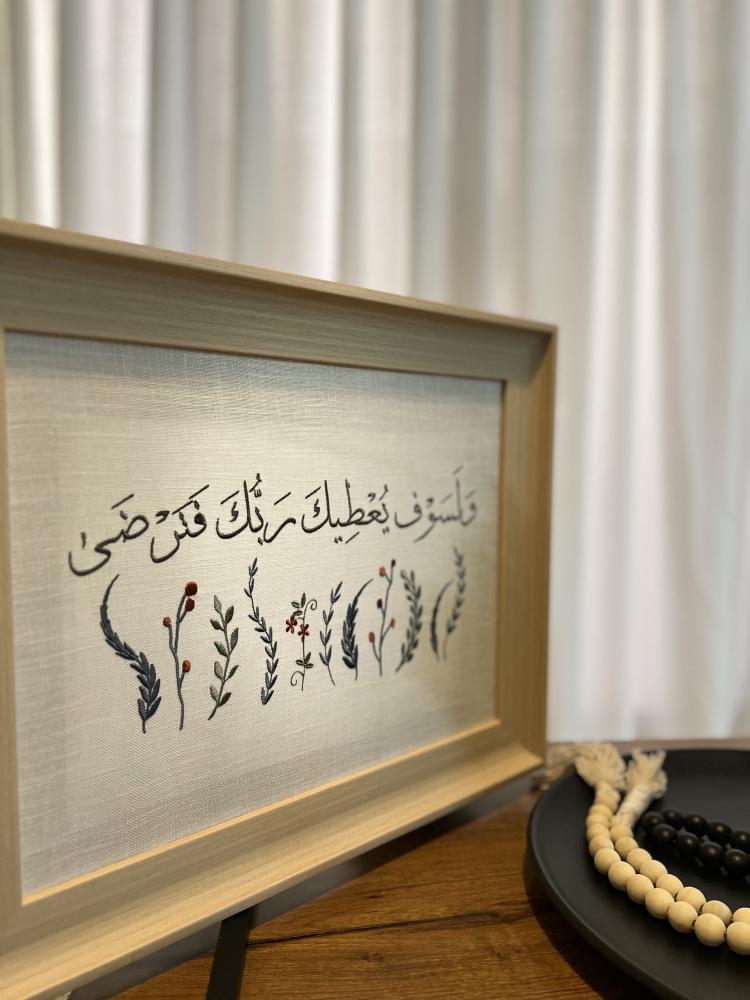 وَلَسَوْف يُعْطِيكَ رَبُّكَ فَتَرْضَىٰ